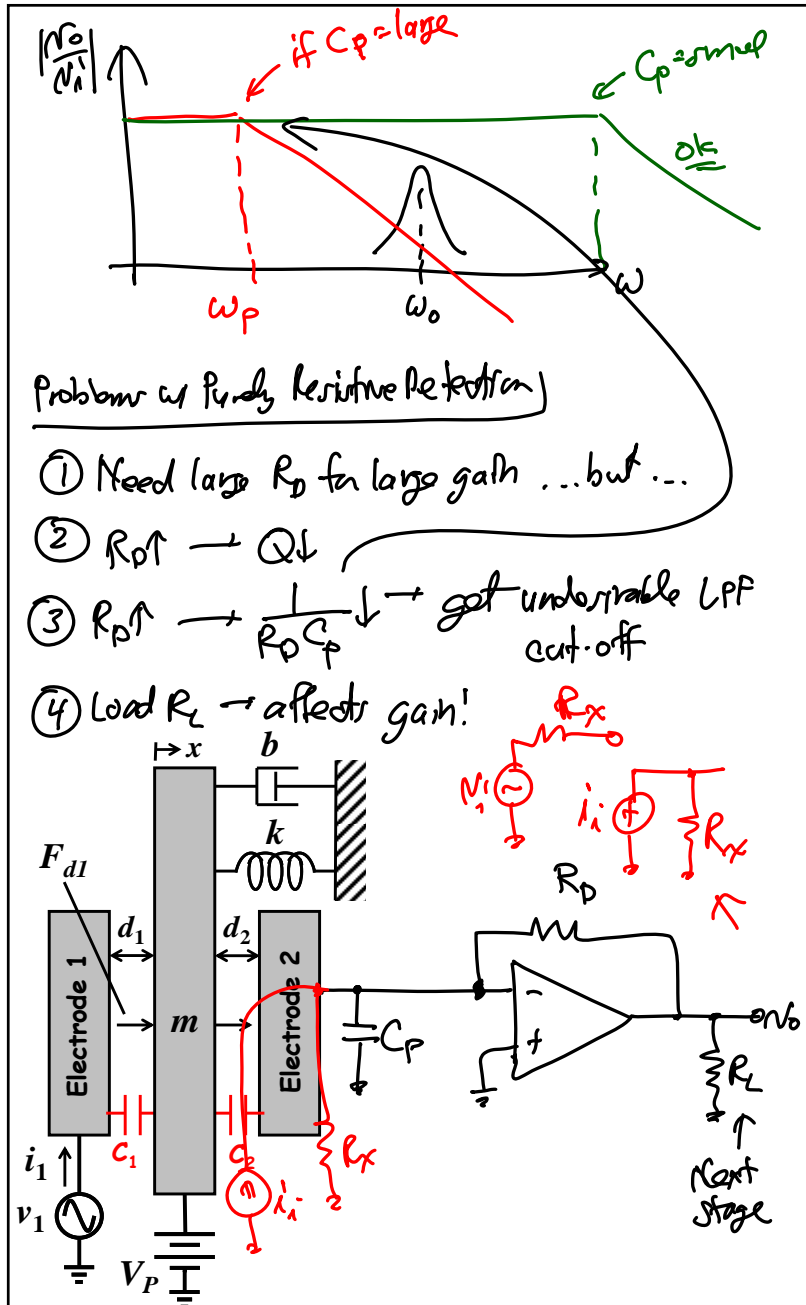 |No/Ni|
if Cp=large
Cp=small
ok
ωp
ω0
ω
Problems w/ Purely Resistive Detection
① Need large RD for large gain ...but...
② RD↑ → Q↓
③ RD↑ → 1/(RD Cp) ↓ → get undesirable LPF
cut-off
④ Load RL → affects gain!
x
b
k
Fd1
d1
d2
Electrode 1
m
Electrode 2
C1
C2
i1
v1
VP
ii
Rx
Cp
Ni
Rx
ii
Rx
RD
-
+
No
RL
Next
stage